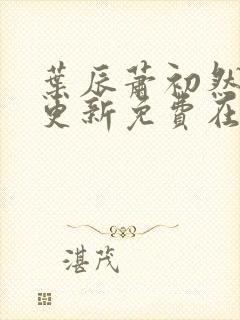 葉辰蕭初然
更新免費在
湛茂